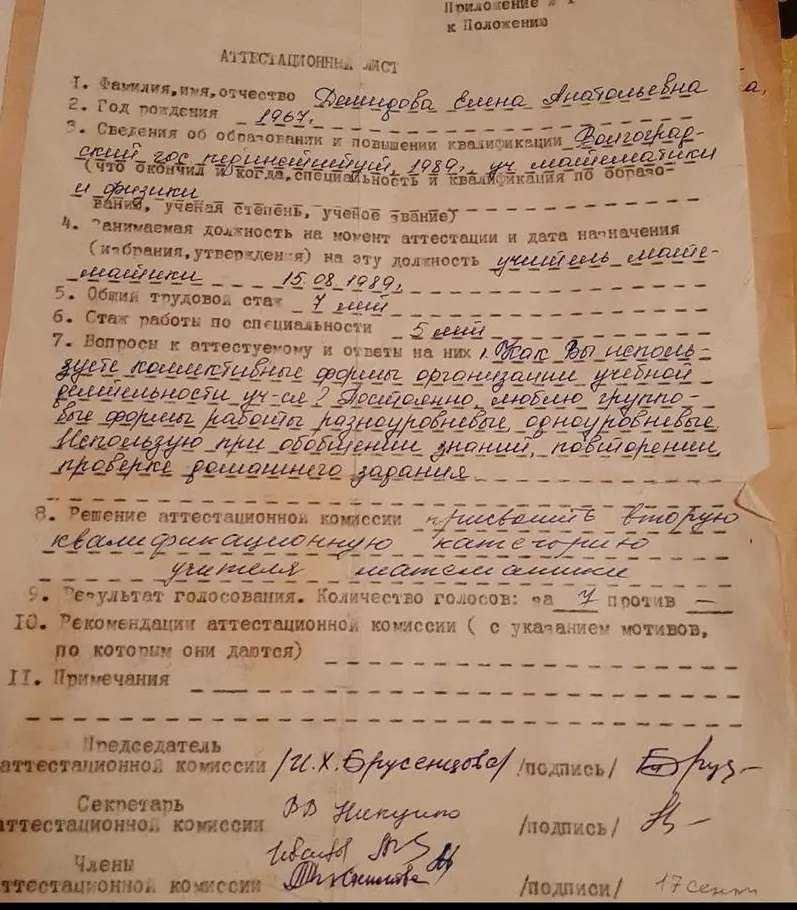 Приложение № 1
к Положению
АТТЕСТАЦИОННЫЙ ЛИСТ
1. Фамилия,имя,отчество Демидова Елена Анатольевна
2. Год рождения 1967г.
3. Сведения об образовании и повышении квалификации Волгоград-
ский гос. пединститут, 1989, уч. математики
(что окончил и когда,специальность и квалификация по образо-
и физики
ванию, ученая степень, ученое звание)
4. Занимаемая должность на момент аттестации и дата назначения
(избрания,утверждения) на эту должность учитель мате-
матики 15.08.1989г.
5. Общий трудовой стаж 7 лет
6. Стаж работы по специальности 5 лет
7. Вопросы к аттестуемому и ответы на них 1. Как Вы исполь-
зуете коллективные формы организации учебной
деятельности уч-ся? Постоянно, люблю группо-
вые формы работы разноуровневые, одноуровневые.
Использую при обобщении знаний, повторении,
проверке домашнего задания.
8. Решение аттестационной комиссии присвоить вторую
квалификационную категорию
учителя математики
9. Результат голосования. Количество голосов: за 7 против —
10. Рекомендации аттестационной комиссии ( с указанием мотивов,
по которым они даются)
11. Примечания
Председатель
аттестационной комиссии /И.Х.Брусенцова/ /подпись/
Секретарь
аттестационной комиссии ВВ /подпись/
Члены
аттестационной комиссии /подписи/ 17 сент